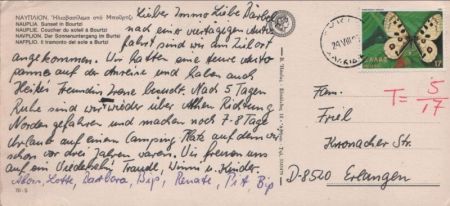 ΝΑΥΠΛΙΟΝ. Ἡλιοβασίλεμα στό Μπούρτζι
NAUPLIA. Sunset in Bourtzi
NAUPLIE. Coucher du soleil à Bourtzi
NAUPLION. Der Sonnenuntergang in Burtzi
NAFPLIO. Il tramonto del sole a Burtzi
Lieber Immo Liebe Bärbel
nach einer viertägigen Auto
fahrt sind wir am Zielort
angekommen. Wir hatten eine
panne auf der Anreise und haben auch
Heikes Freundin Irene besucht. Nach 5 Tagen
Ruhe sind wir wieder über Athen Richtung
Norden gefahren und machen noch 7-8 Tage
Urlaub auf einem Camping Platz auf dem wir
schon vor drei Jahren waren. Wir freuen uns
auf ein Wiedersehn Traudl, und Kinder.
Lotte, Barbara, Renate, Pit,
ΕΛΛΑΣ
17
T = 5/17
Fam.
Friel
Kronacher Str.
D-8520 Erlangen